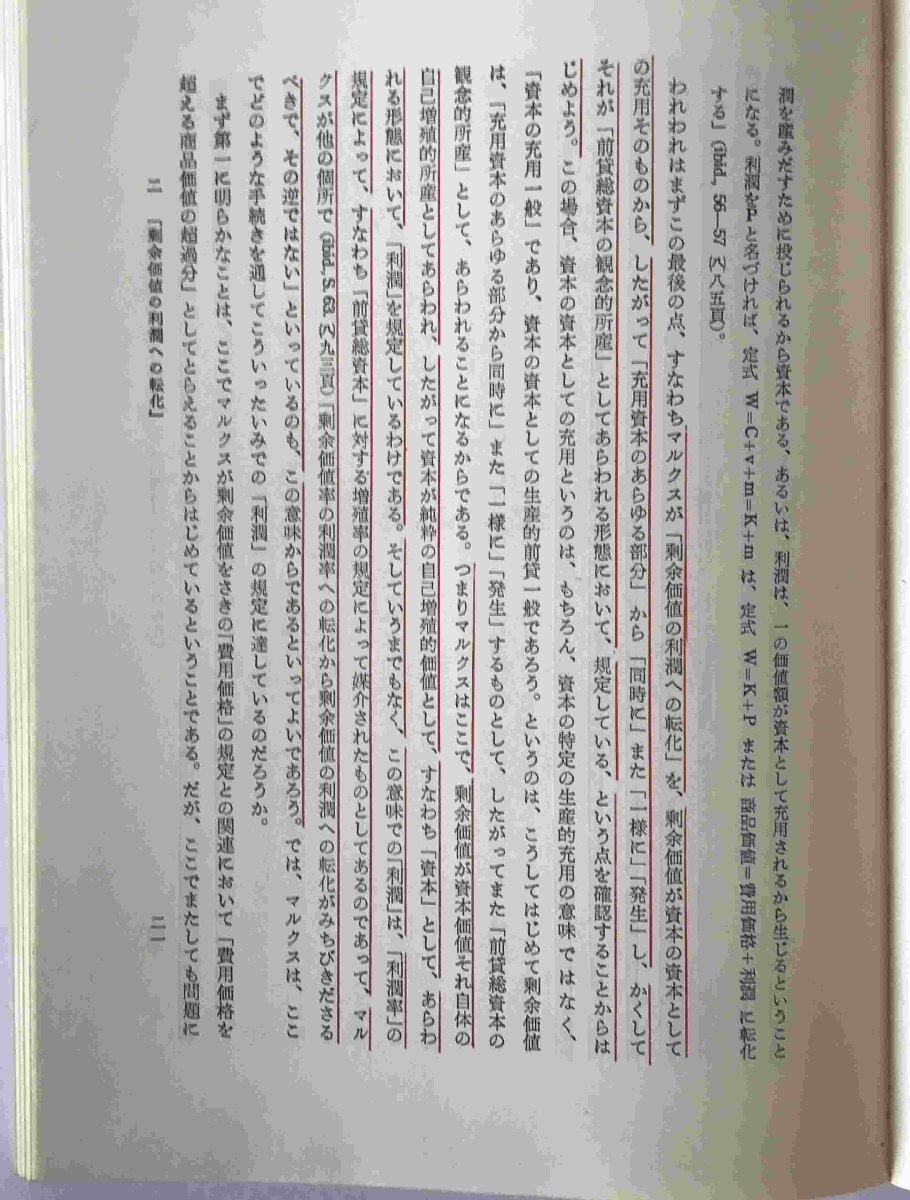 潤を産みだすために投じられるから資本である、あるいは、利潤は、一の価値額が資本として充用されるから生じるということ
になる。利潤をPと名づければ、定式 W=C+v+m=K+m は、定式 W=K+P または 商品価値=費用価格+利潤 に転化
する」(Ibid., 56—57 (八五頁)。
われわれはまずこの最後の点、すなわちマルクスが「剰余価値の利潤への転化」を、剰余価値が資本の資本として
の充用そのものから、したがって「充用資本のあらゆる部分」から「同時に」また「一様に」「発生」し、かくして
それが「前貸総資本の観念的所産」としてあらわれる形態において、規定している、という点を確認することからは
じめよう。この場合、資本の資本としての充用というのは、もちろん、資本の特定の生産的充用の意味ではなく、
「資本の充用一般」であり、資本の資本としての生産的前貸一般であろう。というのは、こうしてはじめて剰余価値
は、「充用資本のあらゆる部分から同時に」また「一様に」「発生」するものとして、したがってまた「前貸総資本の
観念的所産」として、あらわれることになるからである。つまりマルクスはここで、剰余価値が資本価値それ自体の
自己増殖的所産としてあらわれ、したがって資本が純粋の自己増殖的価値として、すなわち「資本」として、あらわ
れる形態において、「利潤」を規定しているわけである。そしていうまでもなく、この意味での「利潤」は、「利潤率」の
規定によって、すなわち「前貸総資本」に対する増殖率の規定によって媒介されたものとしてあるのであって、マル
クスが他の個所で(Ibid., S. 63 (八九三頁)「剰余価値率の利潤率への転化から剰余価値の利潤への転化がみちびきださる
べきで、その逆ではない」といっているのも、この意味からであるといってよいであろう。では、マルクスは、ここ
でどのような手続きを通してこういったいみでの「利潤」の規定に達しているのだろうか。
まず第一に明らかなことは、ここでマルクスが剰余価値をさきの「費用価格」の規定との関連において「費用価格を
超える商品価値の超過分」としてとらえることからはじめているということである。だが、ここでまたしても問題に
二 「剰余価値の利潤への転化」
二一